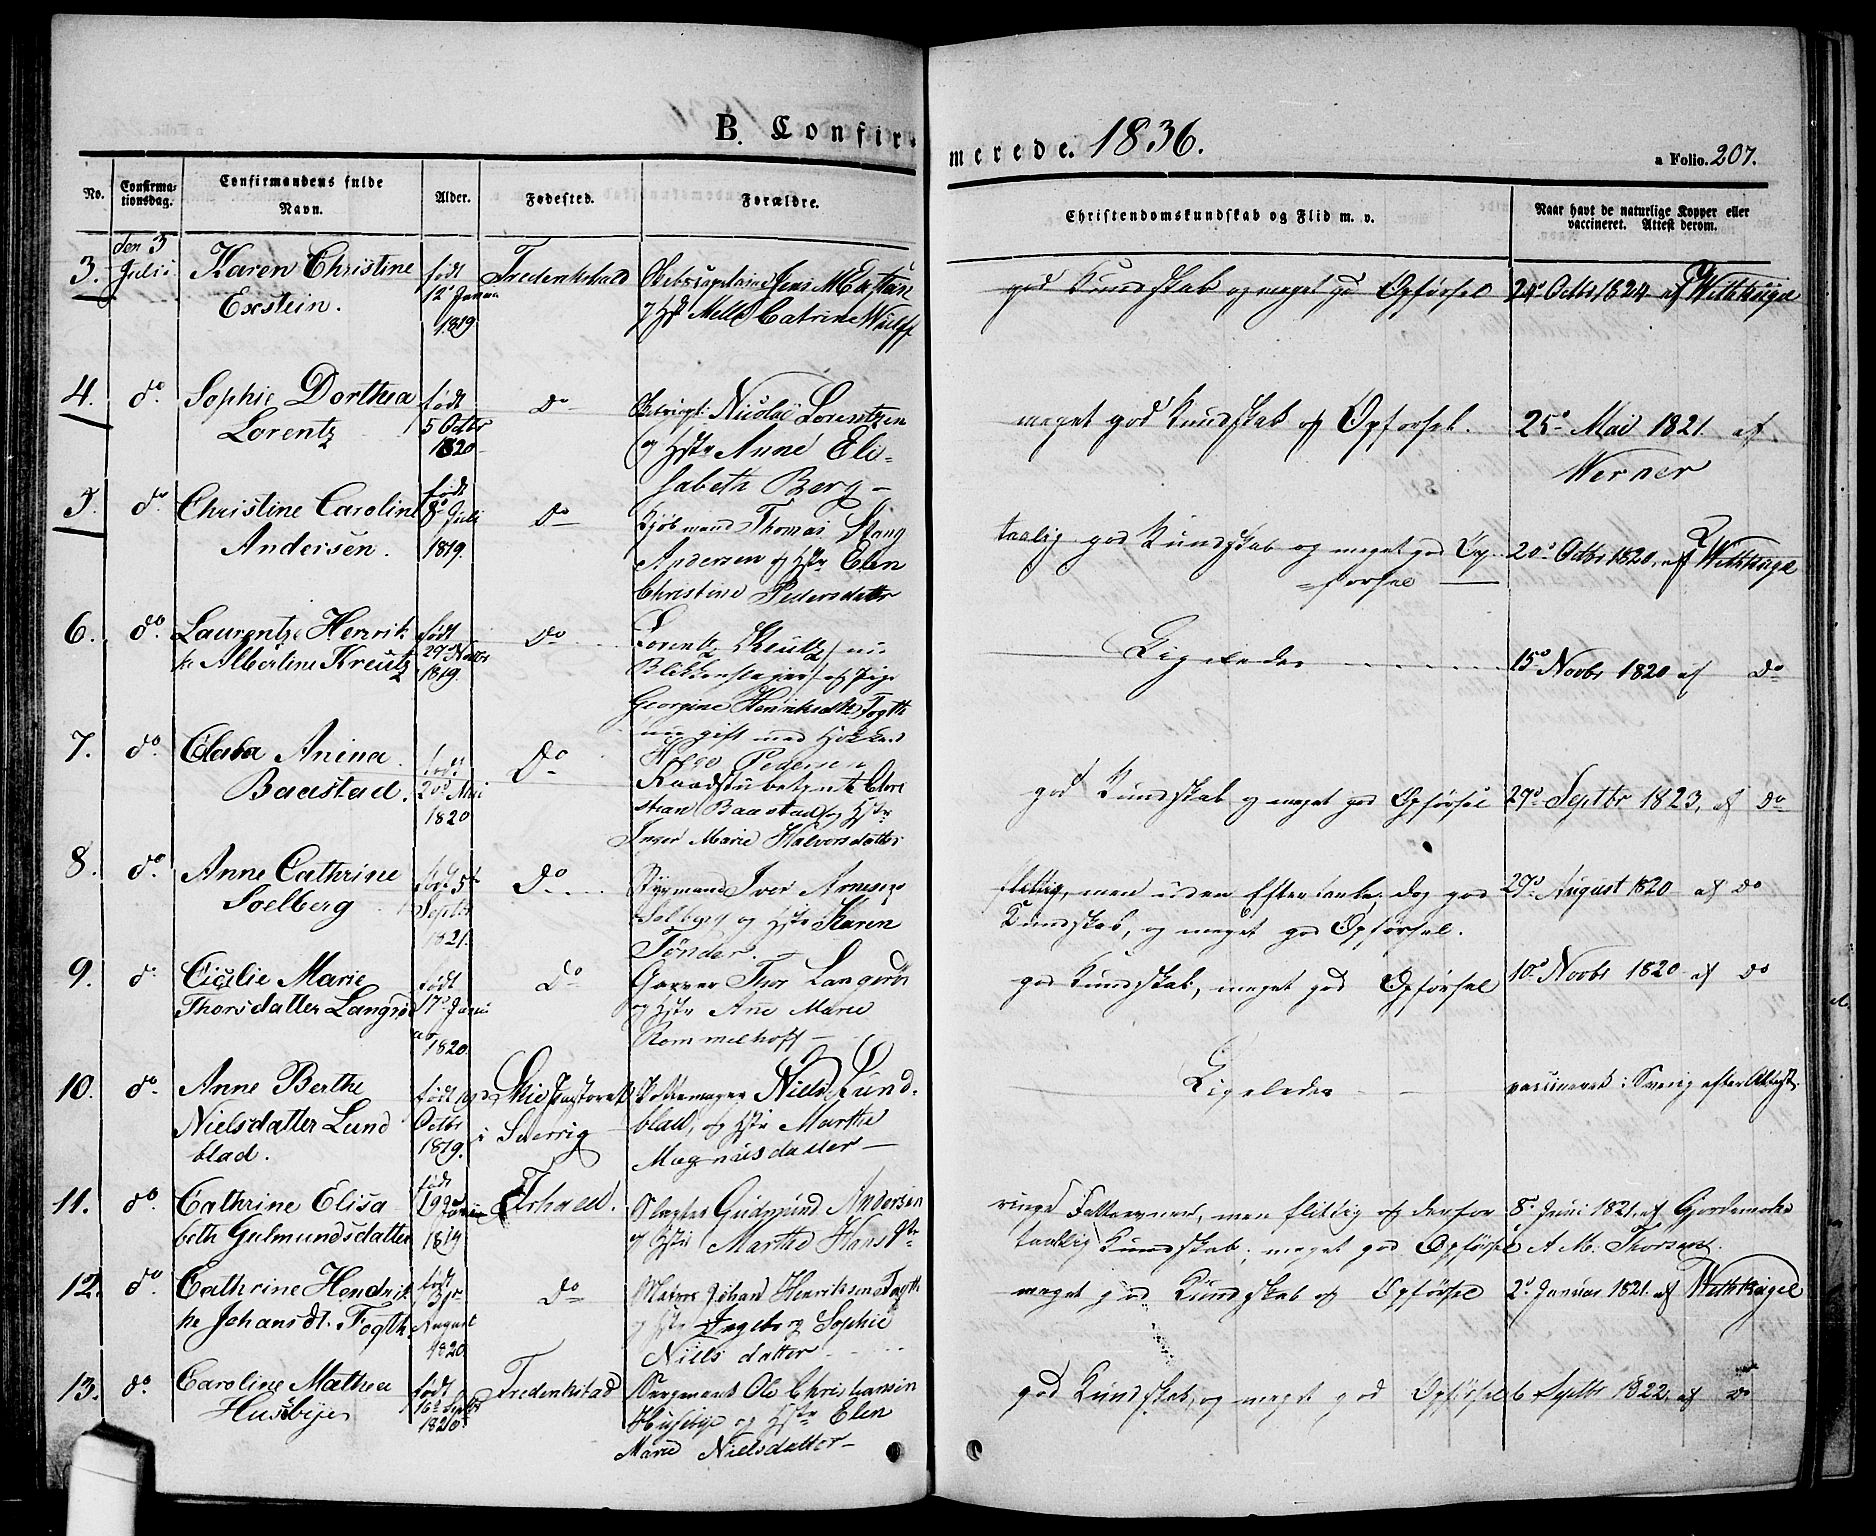 B. Confir-
merede. 1836.
a Folio. 207.
No.
Confirma-
tionsdag.
Confirmandens fulde
Navn.
Alder.
Fødested.
Forældre.
Christendomskundskab og Flid m. v.
Naar havt de naturlige Kopper eller
vaccineret. Attest derom.
3.
den 3
Julii
Karen Christine
Exstein.
født
12te Janua
1819
Frederikstad
Jens M Exstein
Catrine Wulff
god Kundskab og meget god Opførsel
24d Octbr 1824 af Withkügel
4.
do
Sophie Dorthea
Lorentz
født
5 Octbr
1820
Do
Nicolai Lorentzen
og Hstr Anne Eli-
sabeth Berg
meget god Kundskab og Opførsel.
25d Mai 1821 af
Werner
5.
do
Christine Caroline
Andersen.
født
8d Juli
1819.
Do
Kjøbmand Thomas Stang
Andersen og Hstr Elen
Christine Pedersdattr
taalig god Kundskab og meget god Op-
førsel
20d Octbr 1820, af Withkügel
6.
do
Laurentze Henrik-
ke Albertine Kreutz
født
29d Novbr
1819.
Do
Lorentz Kreutz, nu
Blikkenslager og Pige
Georgine Henrikedtr Fogth
nu gift med
Pedersen
Ligeledes
15d Novbr 1820 af Do
7.
do
Clara Anina
Baastad.
født
20d Mai
1820
Do
Raadstubetjent Chri
stian Baastad og Hstr
Inger Marie Halvorsdatter
god Kundskab og meget god Opførsel
29d Septbr 1823, af Do
8.
do
Anne Cathrine
Soelberg
født 5te
Septbr
1821.
Do
Styrmand Iver Arnesen
Solberg og Hstr Karen
Tønder.
flittig, men uden Eftertanke, dog god
Kundskab, og meget god Opførsel.
29d August 1820 af Do
9.
do
Cicilie Marie
Thorsdatter Langrø
født
17d Janu
ar
1820.
Do
Garver Thor Langrøn
og Hstr Ane Marie
Rommelhoff
god Kundskab, meget god Opførsel
10d Novbr 1820 af Do
10.
do
Anne Berthe
Nielsdatter Lund
blad.
født
Octbr
1819.
Skie Pastorat
i Sverrig
Pottemager Niels Lund-
blad, og Hstr Marthe
Magnusdatter
Ligeledes
vaccineret i Sverig efter Attest.
11.
do
Cathrine Elisa
beth Gulmundsdatter
født
19de
1819
Frshald.
Slagter Gudmund Andersen
og Hstr Marthe Hansdtr
ringe Fatteevner, men flittig og derfor
taalelig Kundskab, meget god Opførsel
8d Juni 1821, af Gjordemoder
A M. Thorsen.
12.
do
Cathrine Hendrik
ke Johansdt. Fogth
født
31te
August
1820
Do
Johan Henriksen Fogth
og Hstr Ingeborg Sophie
Niels datter
meget god Kundskab og Opførsel
2d Januar 1821 af Withkügel
13.
do
Caroline Mathea
Husebye
født
16de Septbr
1820.
Frederikstad
Ole Christiansen
Husebye og Hstr Elen
Marie Nielsdatter
god Kundskab, og meget god Opførsel
6 Septbr 1822, af Do